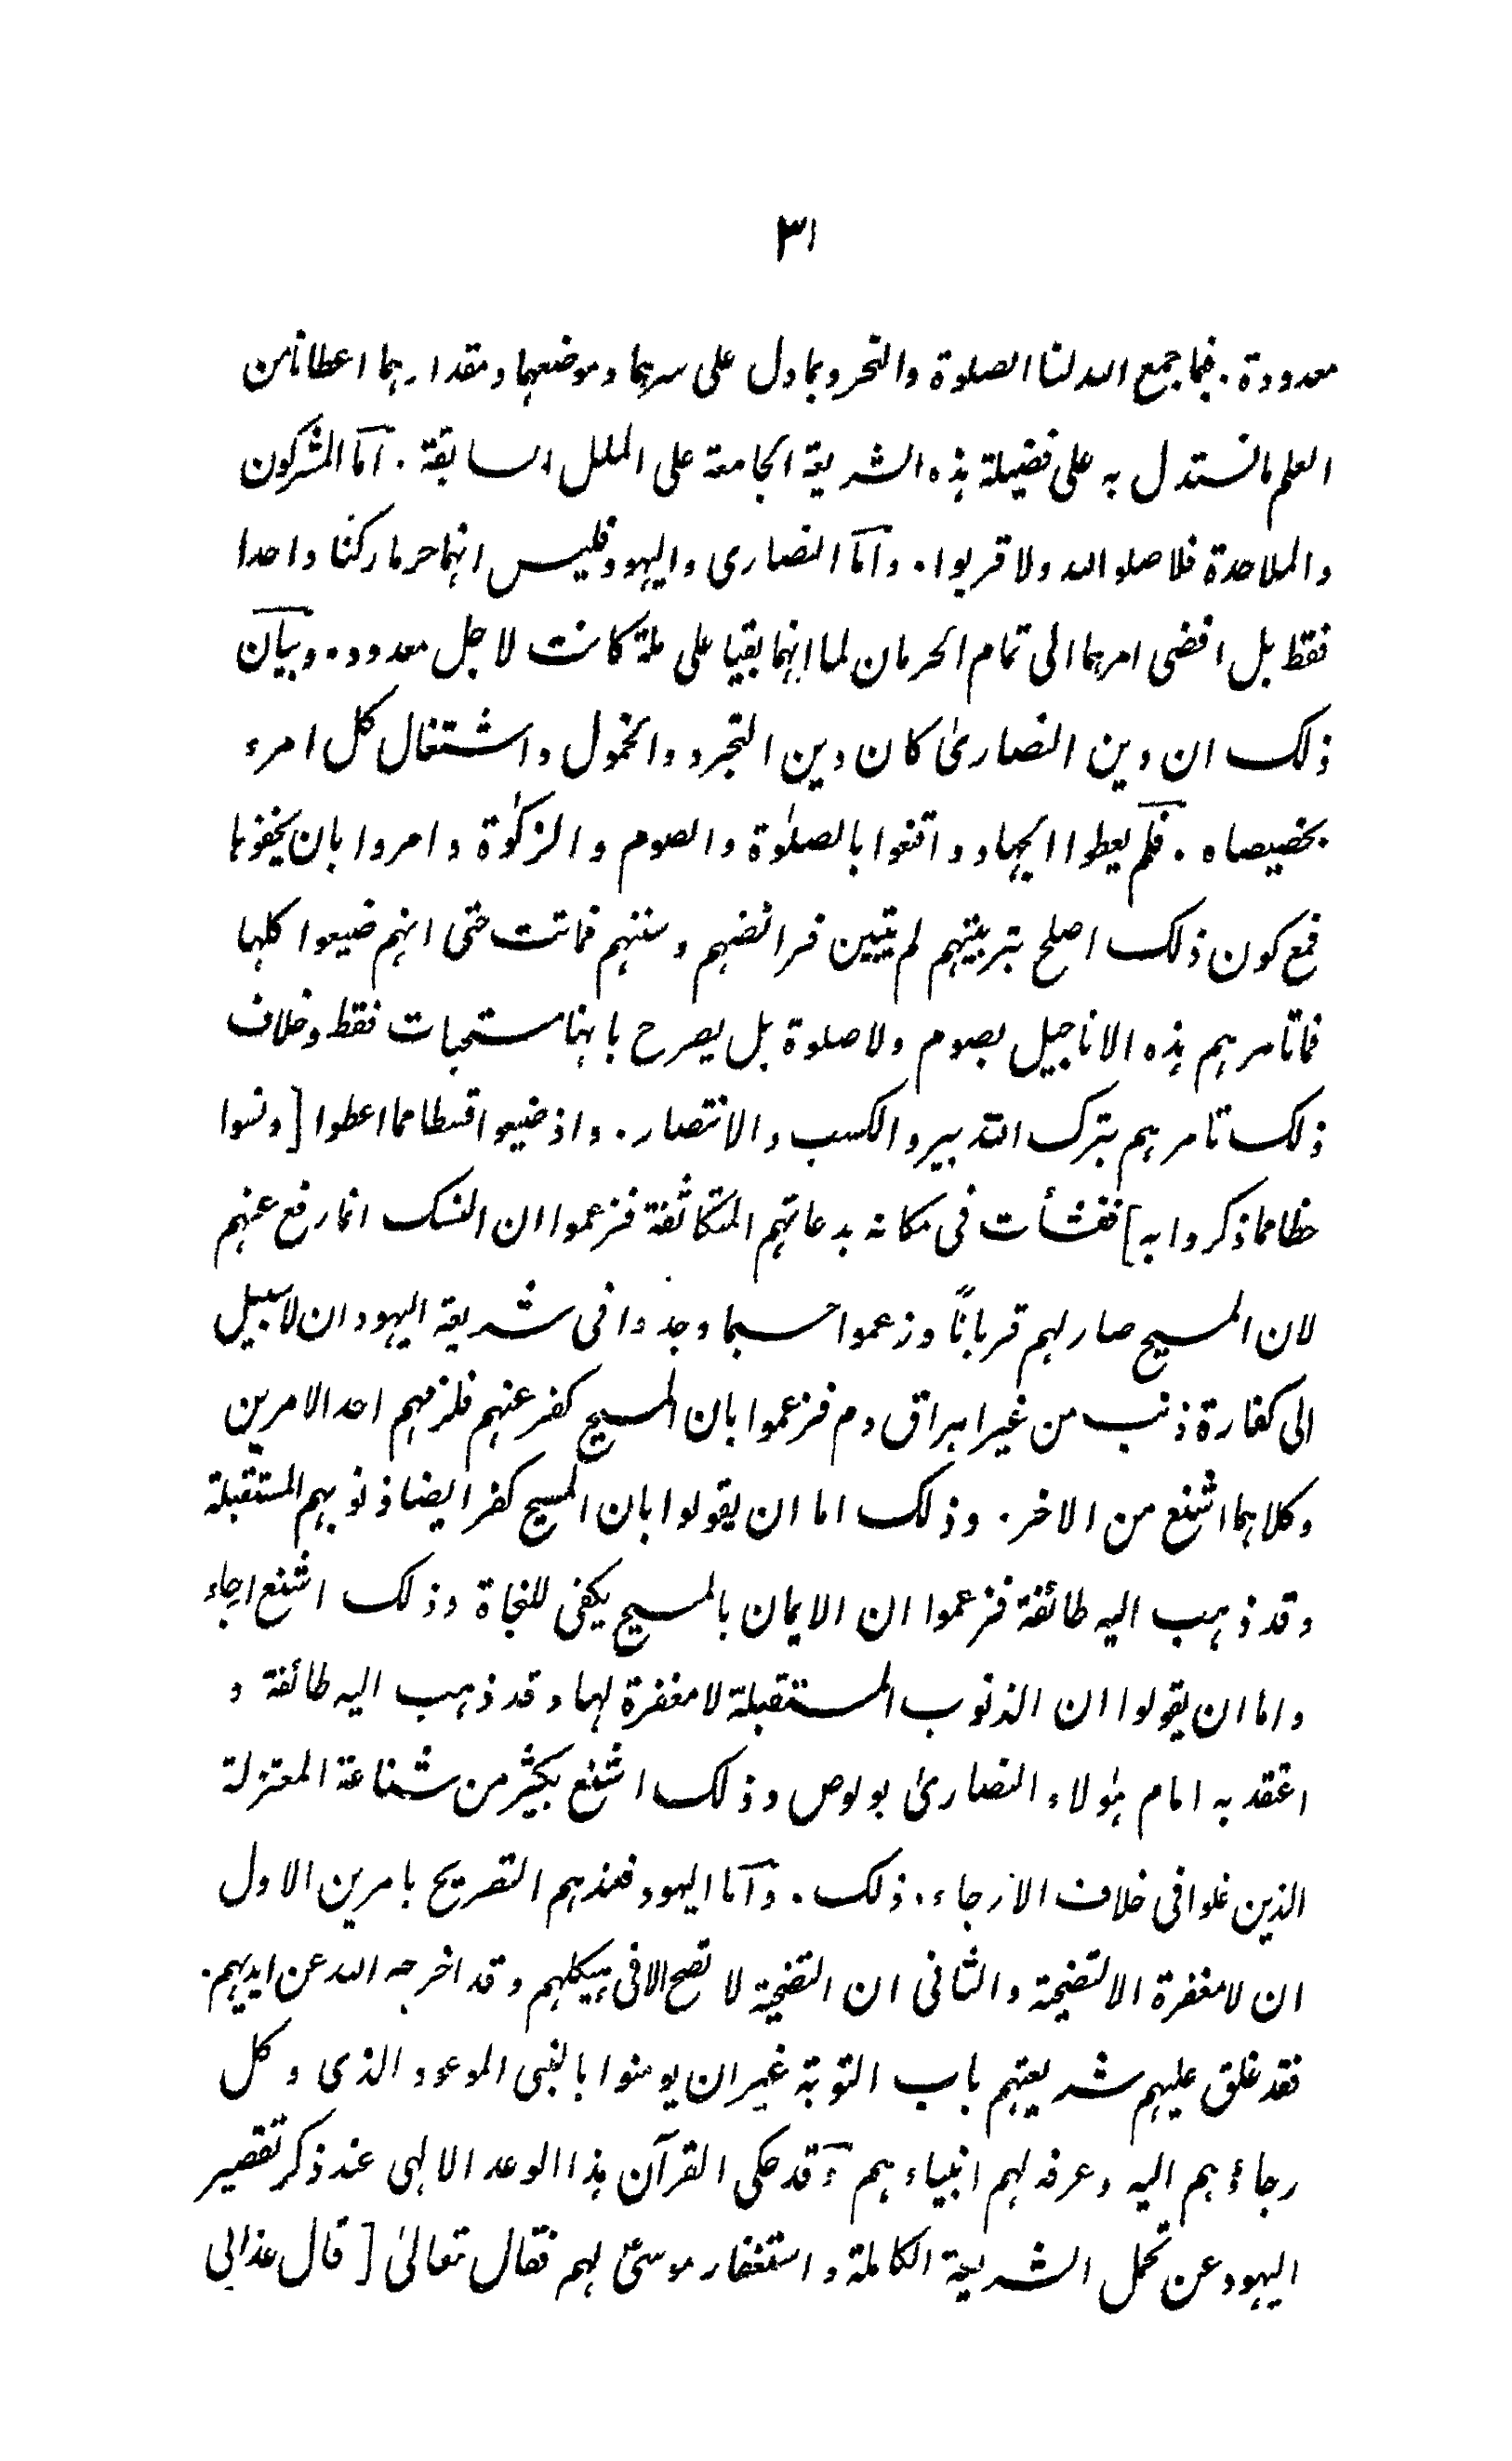 ٣١
معدودة. فبما جمع الله لنا الصلوة والنحر وبما دل على سرهما وموضعهما ومقدارهما اعطانا من
العلم ما نستدل به على فضيلة هذه الشريعة الجامعة على الملل السابقة. اما المشركون
والملاحدة فلا صلوا لله ولا قربوا. واما النصارى واليهود فليس انهما حرما ركنا واحدا
فقط بل افضى امرهما الى تمام الحرمان لما انهما بقيا على ملة كانت لاجل معدود. وبيان
ذلك ان دين النصارىٰ كان دين التجرد والخمول واشتغال كل امرء
بخصيصاه. فلم يعطوا الجهاد واقنعوا بالصلوٰة والصوم والزكوٰة وامروا بان يخفوها
فمع كون ذلك اصلح بتربيتهم لم يتبين فرائضهم وسننهم فماتت حتى انهم ضيعوا كلها
فما تامرهم هذه الاناجيل بصوم ولا صلوة بل يصرح بانها مستحبات فقط وخلاف
ذلك تامرهم بترك التدبير والكسب والانتصار. واذ ضيعوا قسطا مما اعطوا [ونسوا
حظا مما ذكروا به] فنشأت فى مكانه بدعاتهم المتكاثفة فزعموا ان النسك انما رفع عنهم
لان المسيح صار لهم قرباناً وزعموا حسبما وجدوا فى شريعة اليهود ان لا سبيل
الى كفارة ذنب من غير اهراق دم فزعموا بان المسيح كفر عنهم فلزمهم احد الامرين
وكلاهما اشنع من الاخر. وذلك اما ان يقولوا بان المسيح كفر ايضا ذنوبهم المستقبلة
وقد ذهب اليه طائفة فزعموا ان الايمان بالمسيح يكفى للنجاة وذلك اشنع ارجاء
واما ان يقولوا ان الذنوب المستقبلة لا مغفرة لها وقد ذهب اليه طائفة و
اعتقد به امام هٰولاء النصارىٰ بولوص وذلك اشنع بكثير من شناعة المعتزلة
الذين غلوا فى خلاف الارجاء. ذلك. واما اليهود فعندهم التصريح بامرين الاول
ان لا مغفرة الا لتضحية والثانى ان التضحية لا تصح الا فى هيكلهم وقد اخرجه الله عن ايديهم.
فقد غلق عليهم شريعتهم باب التوبة غير ان يومنوا بالنبى الموعود الذى وكل
رجاؤهم اليه وعرفه لهم انبياءهم وقد حكى القرآن هذا الوعد الالهى عند ذكر تقصير
اليهود عن تحمل الشريعة الكاملة واستغفار موسىٰؑ لهم فقال تعالىٰ [قال عذابى